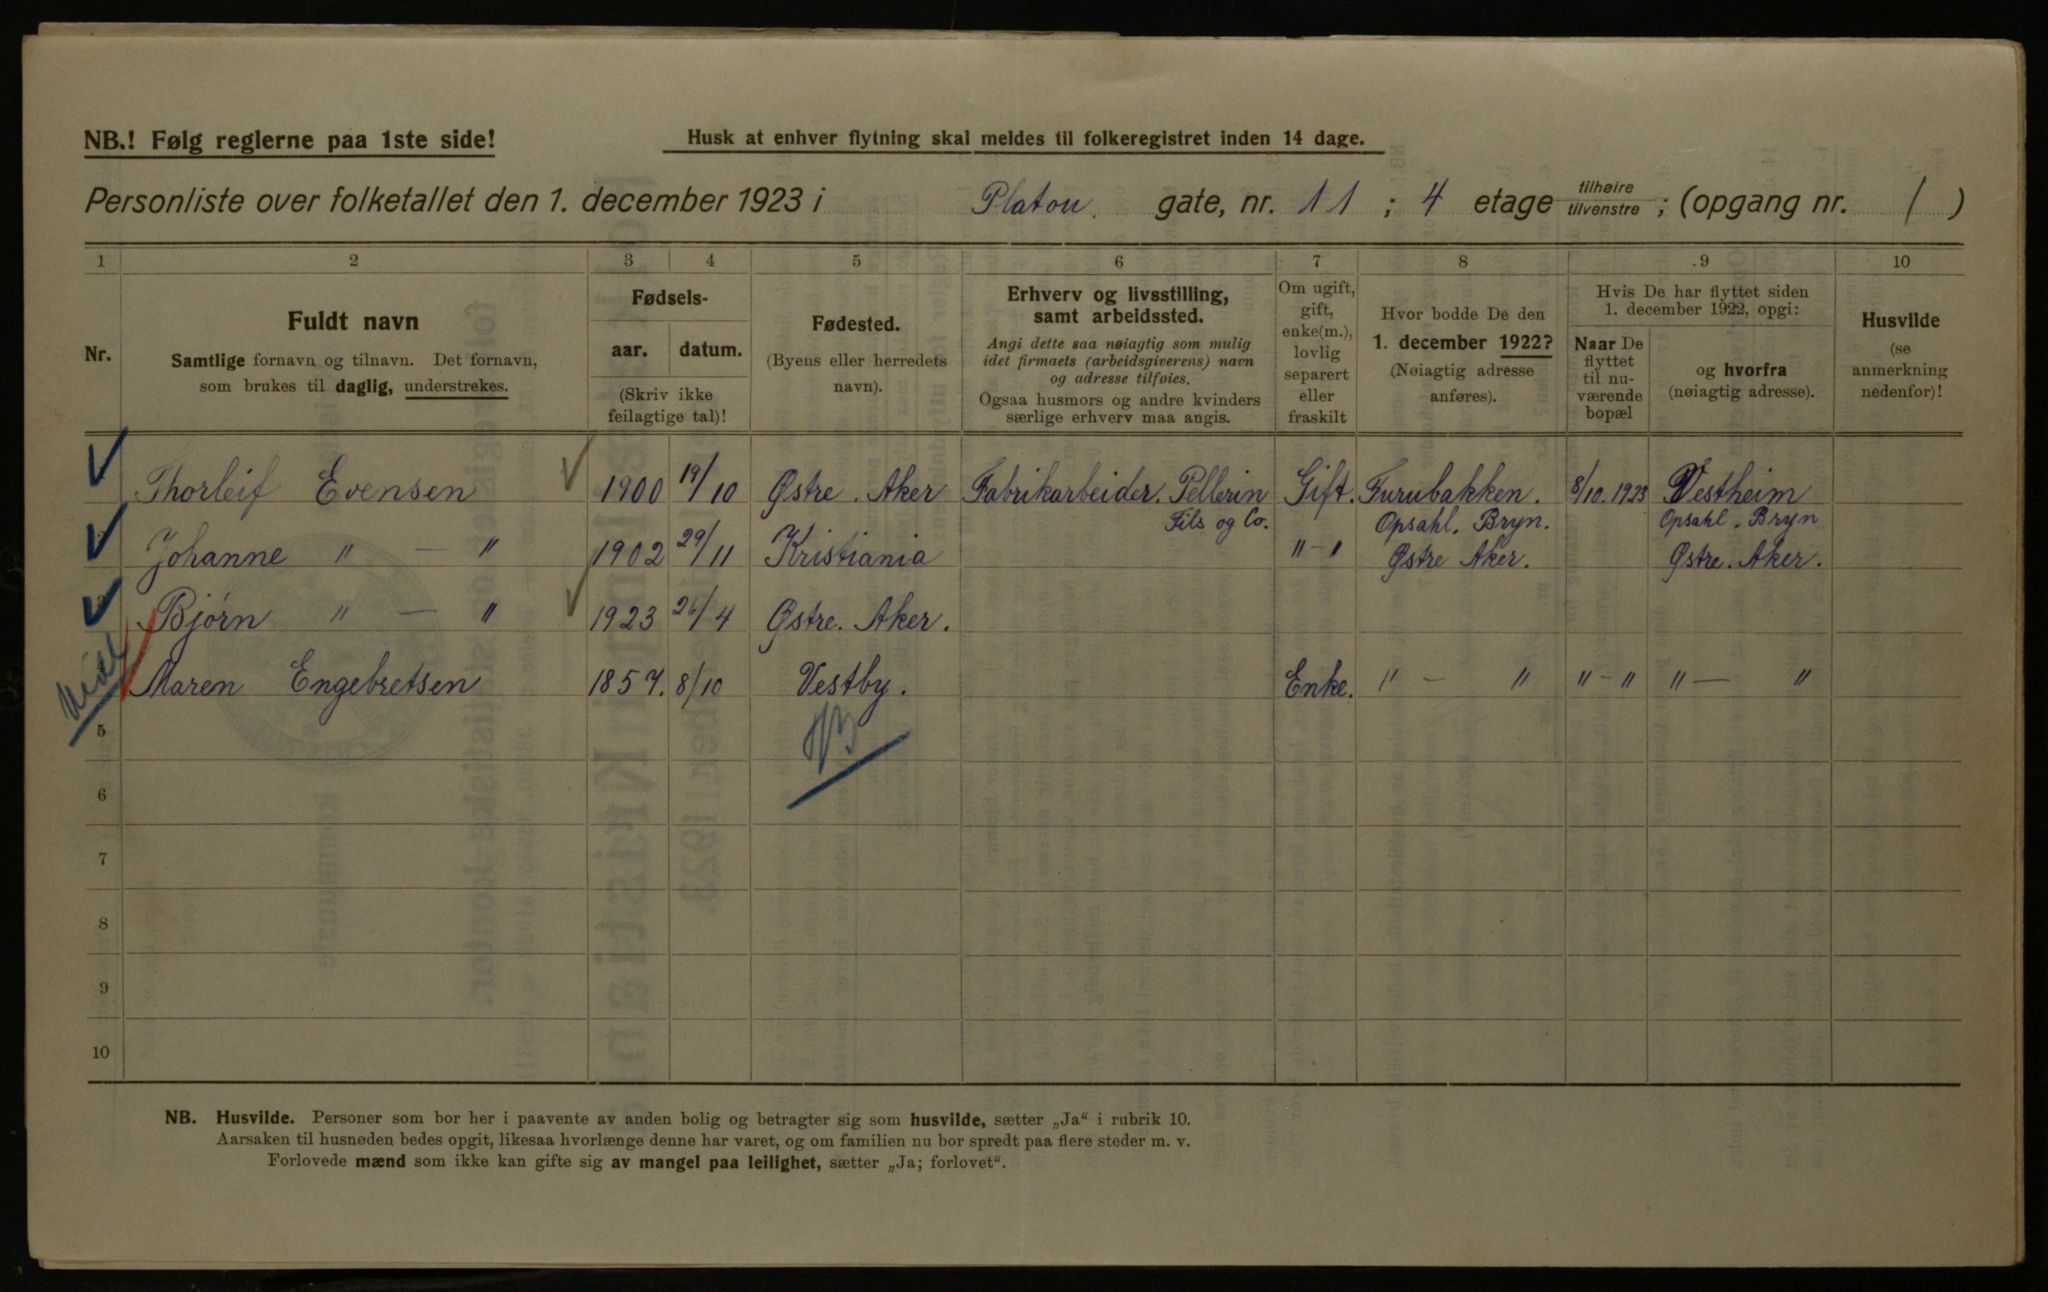 NB.! Følg reglerne paa 1ste side!
Husk at enhver flytning skal meldes til folkeregistret inden 14 dage.
Personliste over folketallet den 1. december 1923 i Platou gate, nr. 11 ; 4 etage tilhøire tilvenstre ; (opgang nr. / )
1 2 3 4 5 6 7 8 9 10
Nr.
Fuldt navn
Samtlige fornavn og tilnavn. Det fornavn,
som brukes til daglig, understrekes.
Fødsels-
aar. datum.
(Skriv ikke
feilagtige tal)!
Fødested.
(Byens eller herredets
navn).
Erhverv og livsstilling,
samt arbeidssted.
Angi dette saa nøiagtig som mulig
idet firmaets (arbeidsgiverens) navn
og adresse tilføies.
Ogsaa husmors og andre kvinders
særlige erhverv maa angis.
Om ugift,
gift,
enke(m.),
lovlig
separert
eller
fraskilt
Hvor bodde De den
1. december 1922?
(Nøiagtig adresse
anføres).
Hvis De har flyttet siden
1. december 1922, opgi:
Naar De
flyttet
til nu-
værende
bopæl
og hvorfra
(nøiagtig adresse).
Husvilde
(se
anmerkning
nedenfor)!
Thorleif Evensen 1900 19/10 Østre. Aker Fabrikarbeider. Pellerin Gift. Furubakken. 8/10. 1923 Vestheim
Fils og Co. Opsahl. Bryn. Opsahl. Bryn
Johanne " — " 1902 29/11 Kristiania " - " Østre Aker. Østre. Aker.
Bjørn " — " 1923 26/4 Østre. Aker.
Maren Engebretsen 1857. 8/10 Vestby. Enke. " - " " - " " — "
5
6
7
8
9
10
NB. Husvilde. Personer som bor her i paavente av anden bolig og betragter sig som husvilde, sætter „Ja“ i rubrik 10.
Aarsaken til husnøden bedes opgit, likesaa hvorlænge denne har varet, og om familien nu bor spredt paa flere steder m. v.
Forlovede mænd som ikke kan gifte sig av mangel paa leilighet, sætter „Ja; forlovet“.